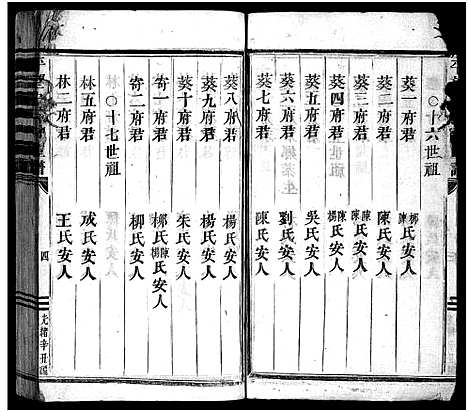 〇十六世祖
葵一府君 柳陳氏安人
葵二府君 陳氏安人
葵三府君 陳陳氏安人
葵四府君 陳楊氏安人
葵五府君 吳氏安人
葵六府君 劉氏安人
葵七府君 陳氏安人
葵八府君 楊氏安人
葵九府君 楊氏安人
葵十府君 朱氏安人
奇一府君 柳陳楊氏安人
奇二府君 柳氏安人
〇十七世祖
林五府君 成氏安人
林二府君 王氏安人
四
光緒辛丑